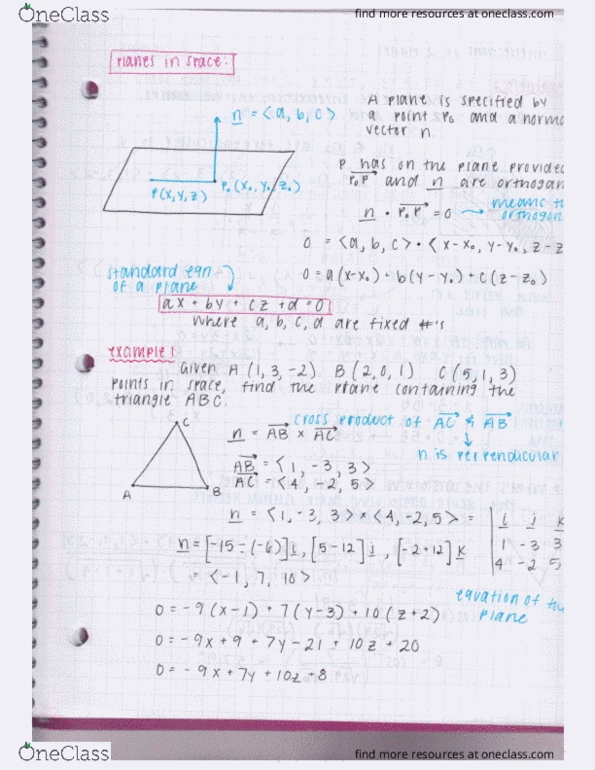 OneClass
find more resources at oneclass.com
planes in space:
n = <a, b, c>
A plane is specified by
a point P₀ and a norma
vector n.
P(x, y, z)
P₀(x₀, y₀, z₀)
P has on the plane provided
P₀P and n are orthogon
n • P₀P = 0 → means t
orthogon
0 = <a, b, c> • <x-x₀, y-y₀, z-z
0 = a(x-x₀) + b(y-y₀) + c(z-z₀)
standard eqn
of a plane
ax + by + cz + d = 0
where a, b, c, d are fixed #'s
example 1
Given A(1, 3, -2) B(2, 0, 1) C(5, 1, 3)
points in space, find the plane containing the
triangle ABC.
cross product of AC & AB
n = AB × AC
n is perpendicular
C
A
B
AB = <1, -3, 3>
AC = <4, -2, 5>
n = <1, -3, 3> × <4, -2, 5> = | i j k
1 -3 3
4 -2 5
n = [-15 - (-6)] i, [5 - 12] j, [-2 + 12] k
= <-1, 7, 10>
equation of th
plane
0 = -9(x-1) + 7(y-3) + 10(z+2)
0 = -9x + 9 + 7y - 21 + 10z + 20
0 = -9x + 7y + 10z + 8
OneClass
find more resources at oneclass.com